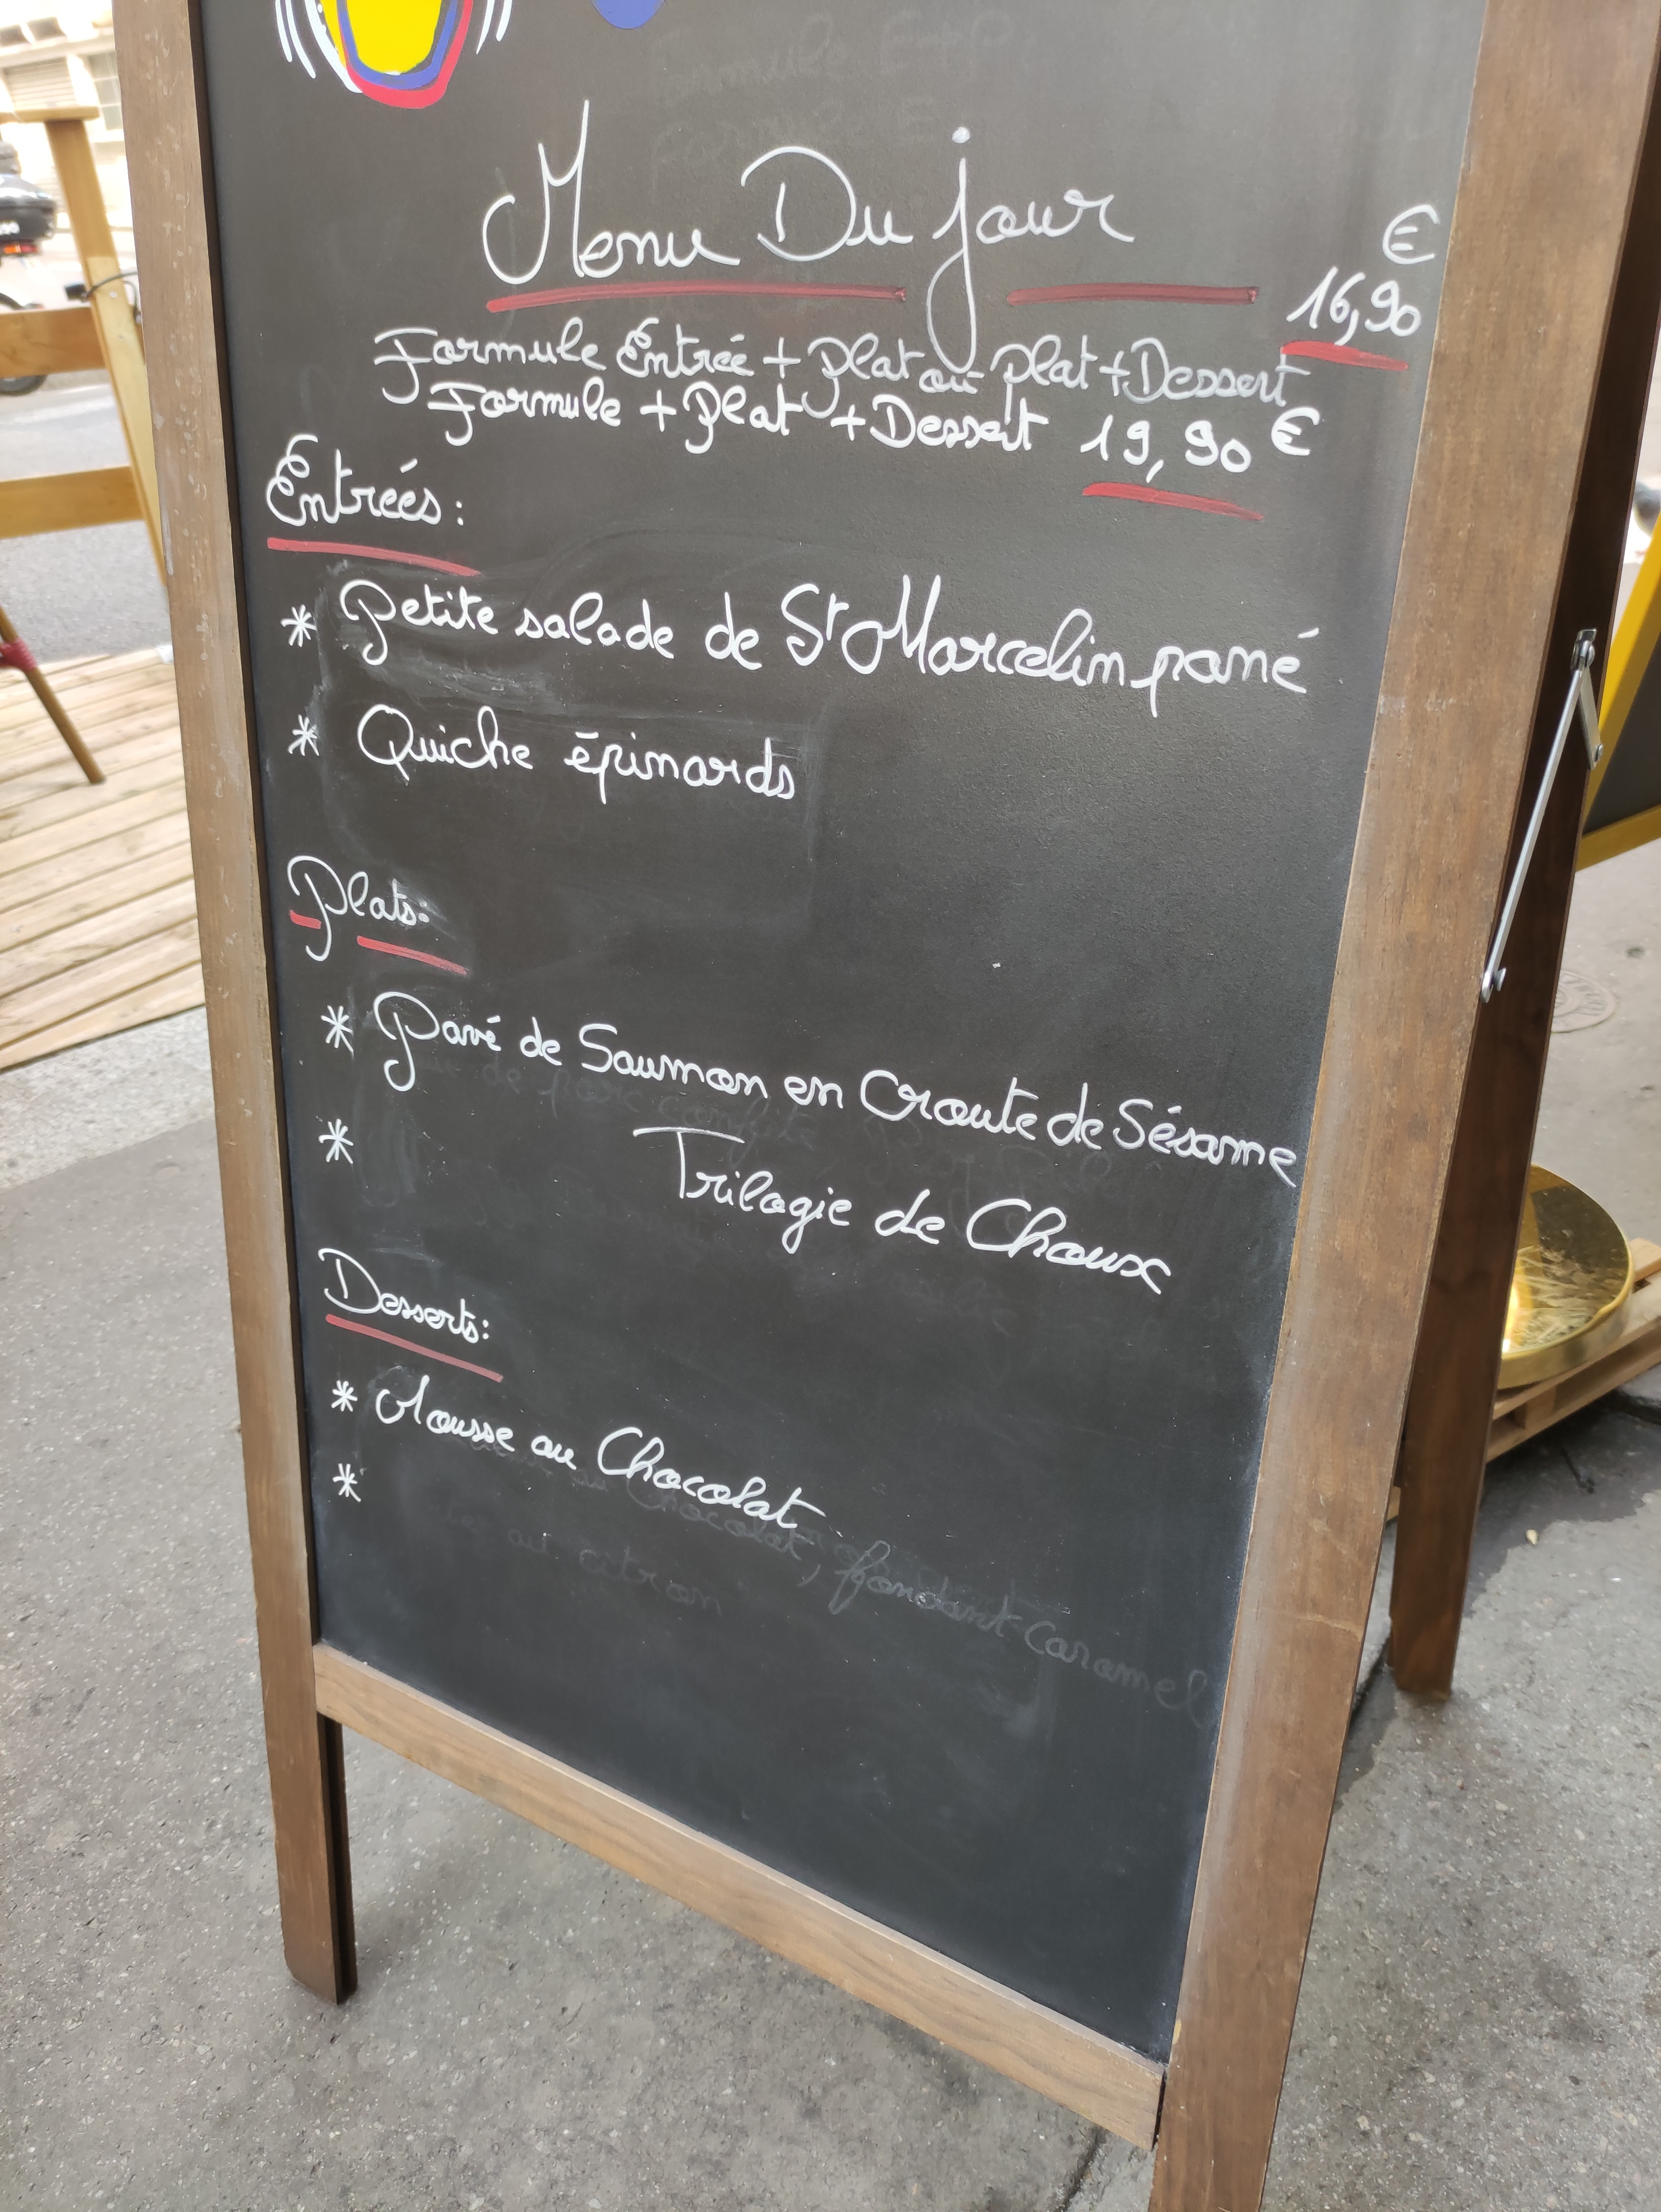 Menu Du jour
€
16,90
Formule Entrée + Plat ou Plat + Dessert
Formule + Plat + Dessert 19,90 €
Entrées :
* Petite salade de St Marcelin pané
* Quiche épinards
Plats :
* Pavé de Saumon en Croute de Sésame
* Trilogie de Choux
Desserts :
* Mousse au Chocolat
*
au Chocolat, fondant Caramel
au citron